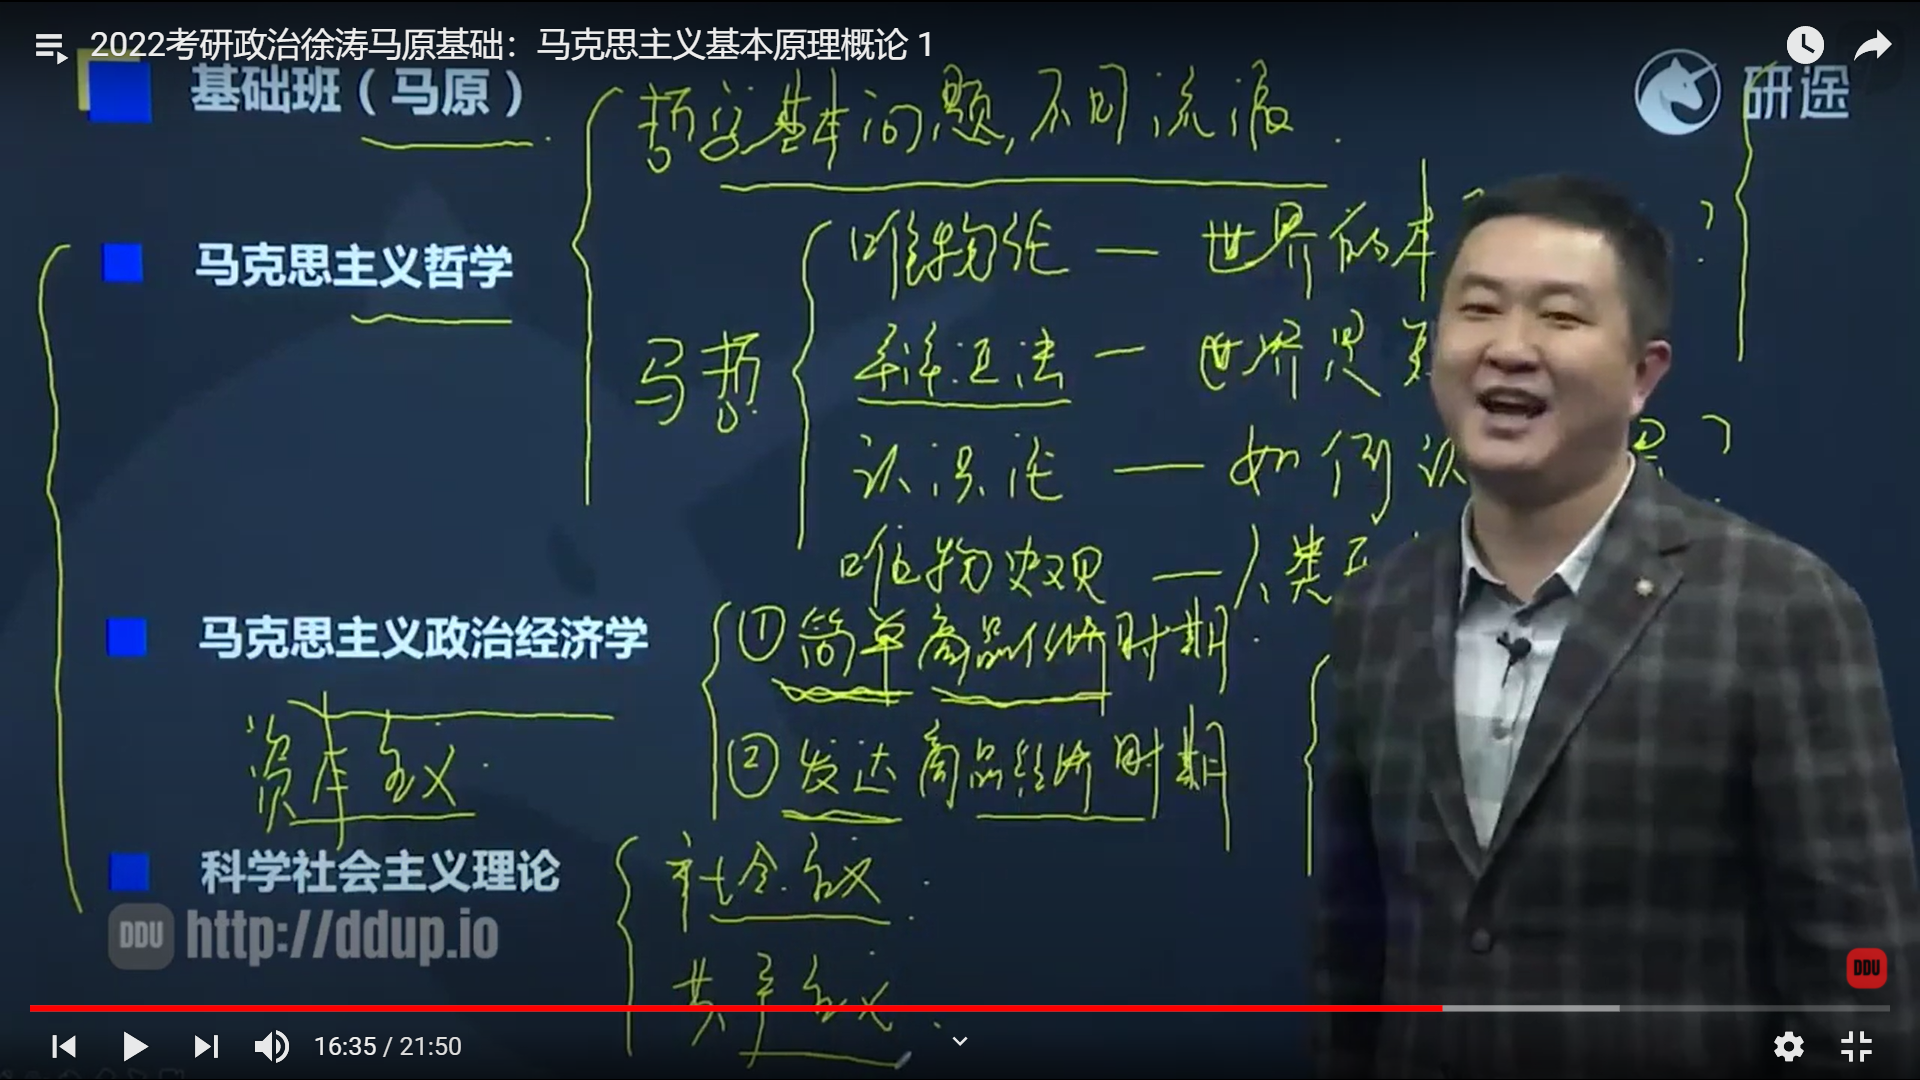 2022考研政治徐涛马原基础：马克思主义基本原理概论 1
基础班（马原）
研途
哲学基本问题,不同流派.
马克思主义哲学
马哲
唯物论 — 世界的本 ?
辩证法 — 世界是
认识论 — 如何认 ?
唯物史观 — 人类
马克思主义政治经济学
①简单商品经济时期.
②发达商品经济时期
资本主义.
科学社会主义理论
社会主义.
共产主义.
DDU http://ddup.io
DDU
16:35 / 21:50